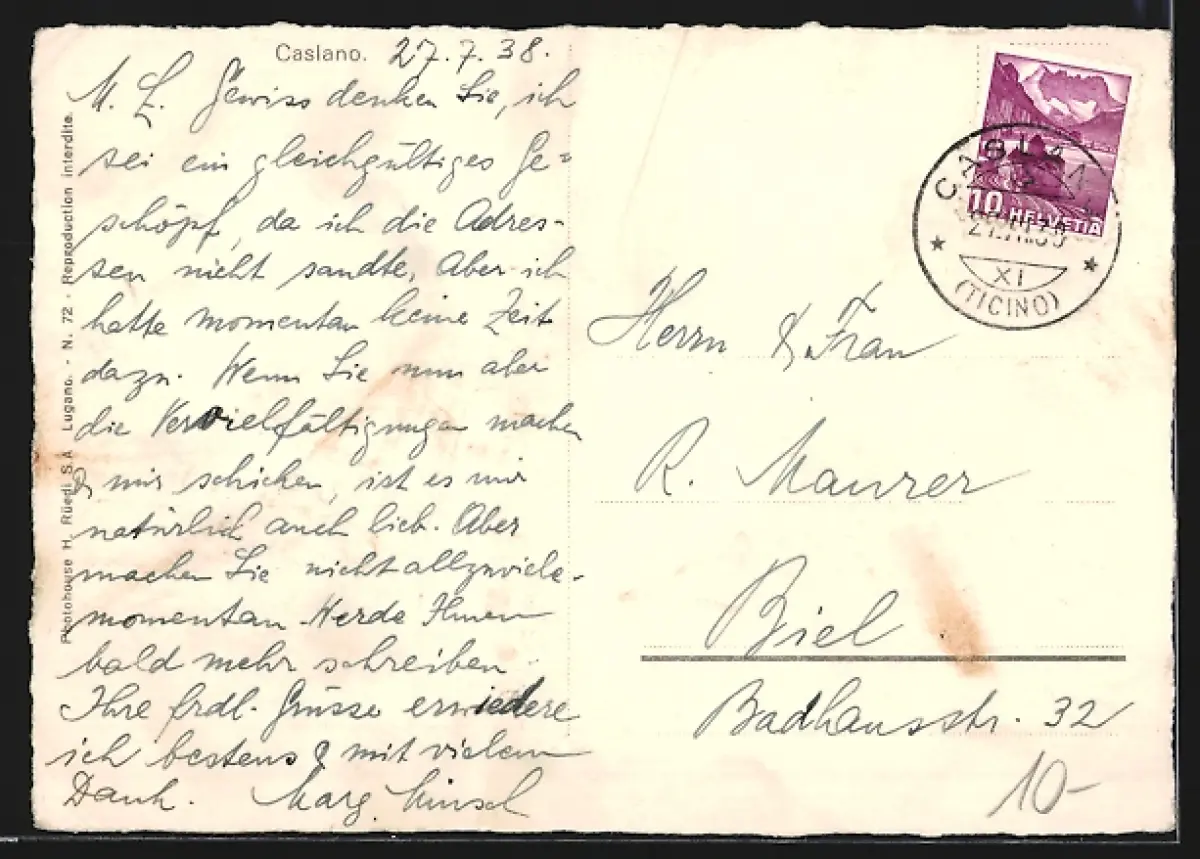 Caslano. 27.7.38.
M. L. Gewiss denken Sie, ich
sei ein gleichgültiges Ge=
schöpf, da ich die Adres-
sen nicht sandte. Aber ich
hatte momentan keine Zeit
dazu. Wenn Sie nun aber
die Vervielfältigungen machen
& mir schicken, ist es mir
natürlich auch lieb. Aber
machen Sie nicht allzuviele
momentan. Werde Ihnen
bald mehr schreiben.
Ihre frdl. Grüsse erwiedere
ich bestens & mit vielem
Dank. Marg.
Photohouse H. Rüedi S.A. Lugano. - N. 72 - Reproduction interdite.
10 HELVETIA
CASLANO
XI
(TICINO)
Herrn & Frau
R. Maurer
Biel
Badhausstr. 32
10-